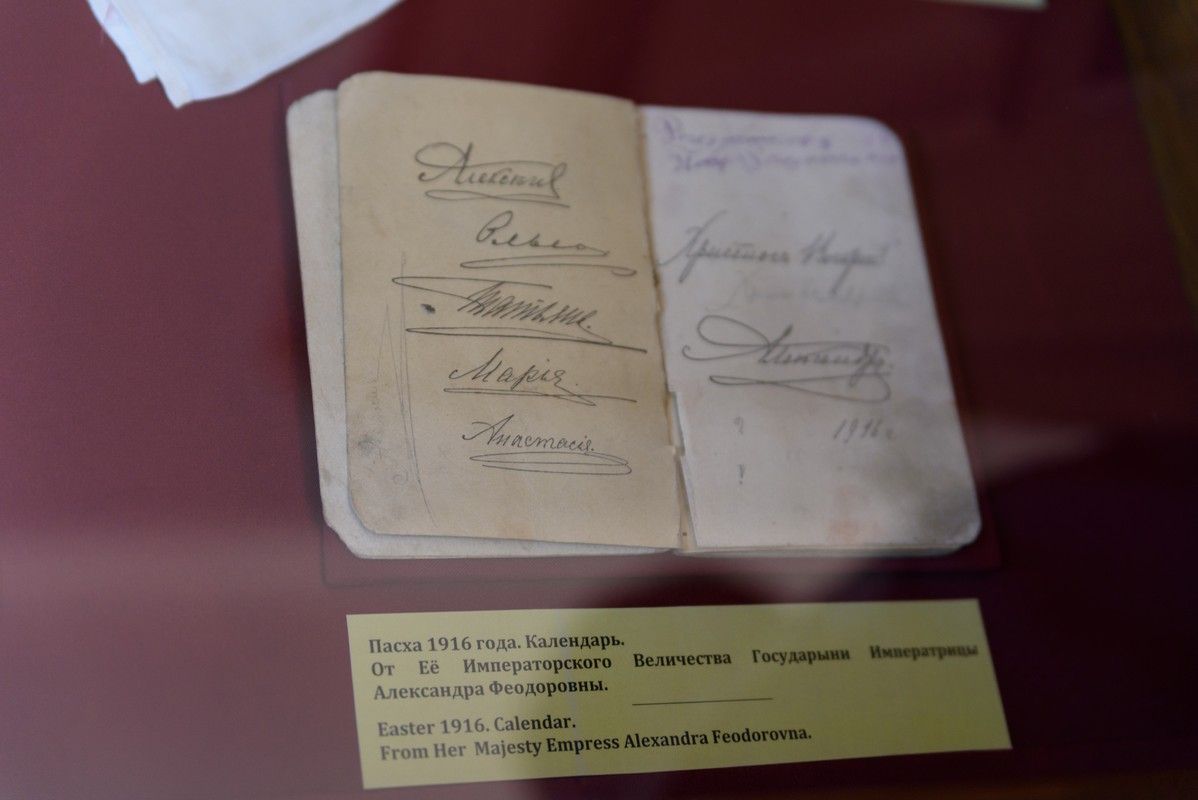 Алексѣй
Ольга
Татьяна.
Марія.
Анастасія.
Христосъ Воскресе
Александра.
1916 г
Пасха 1916 года. Календарь.
От Её Императорского Величества Государыни Императрицы
Александра Феодоровны.
Easter 1916. Calendar.
From Her Majesty Empress Alexandra Feodorovna.